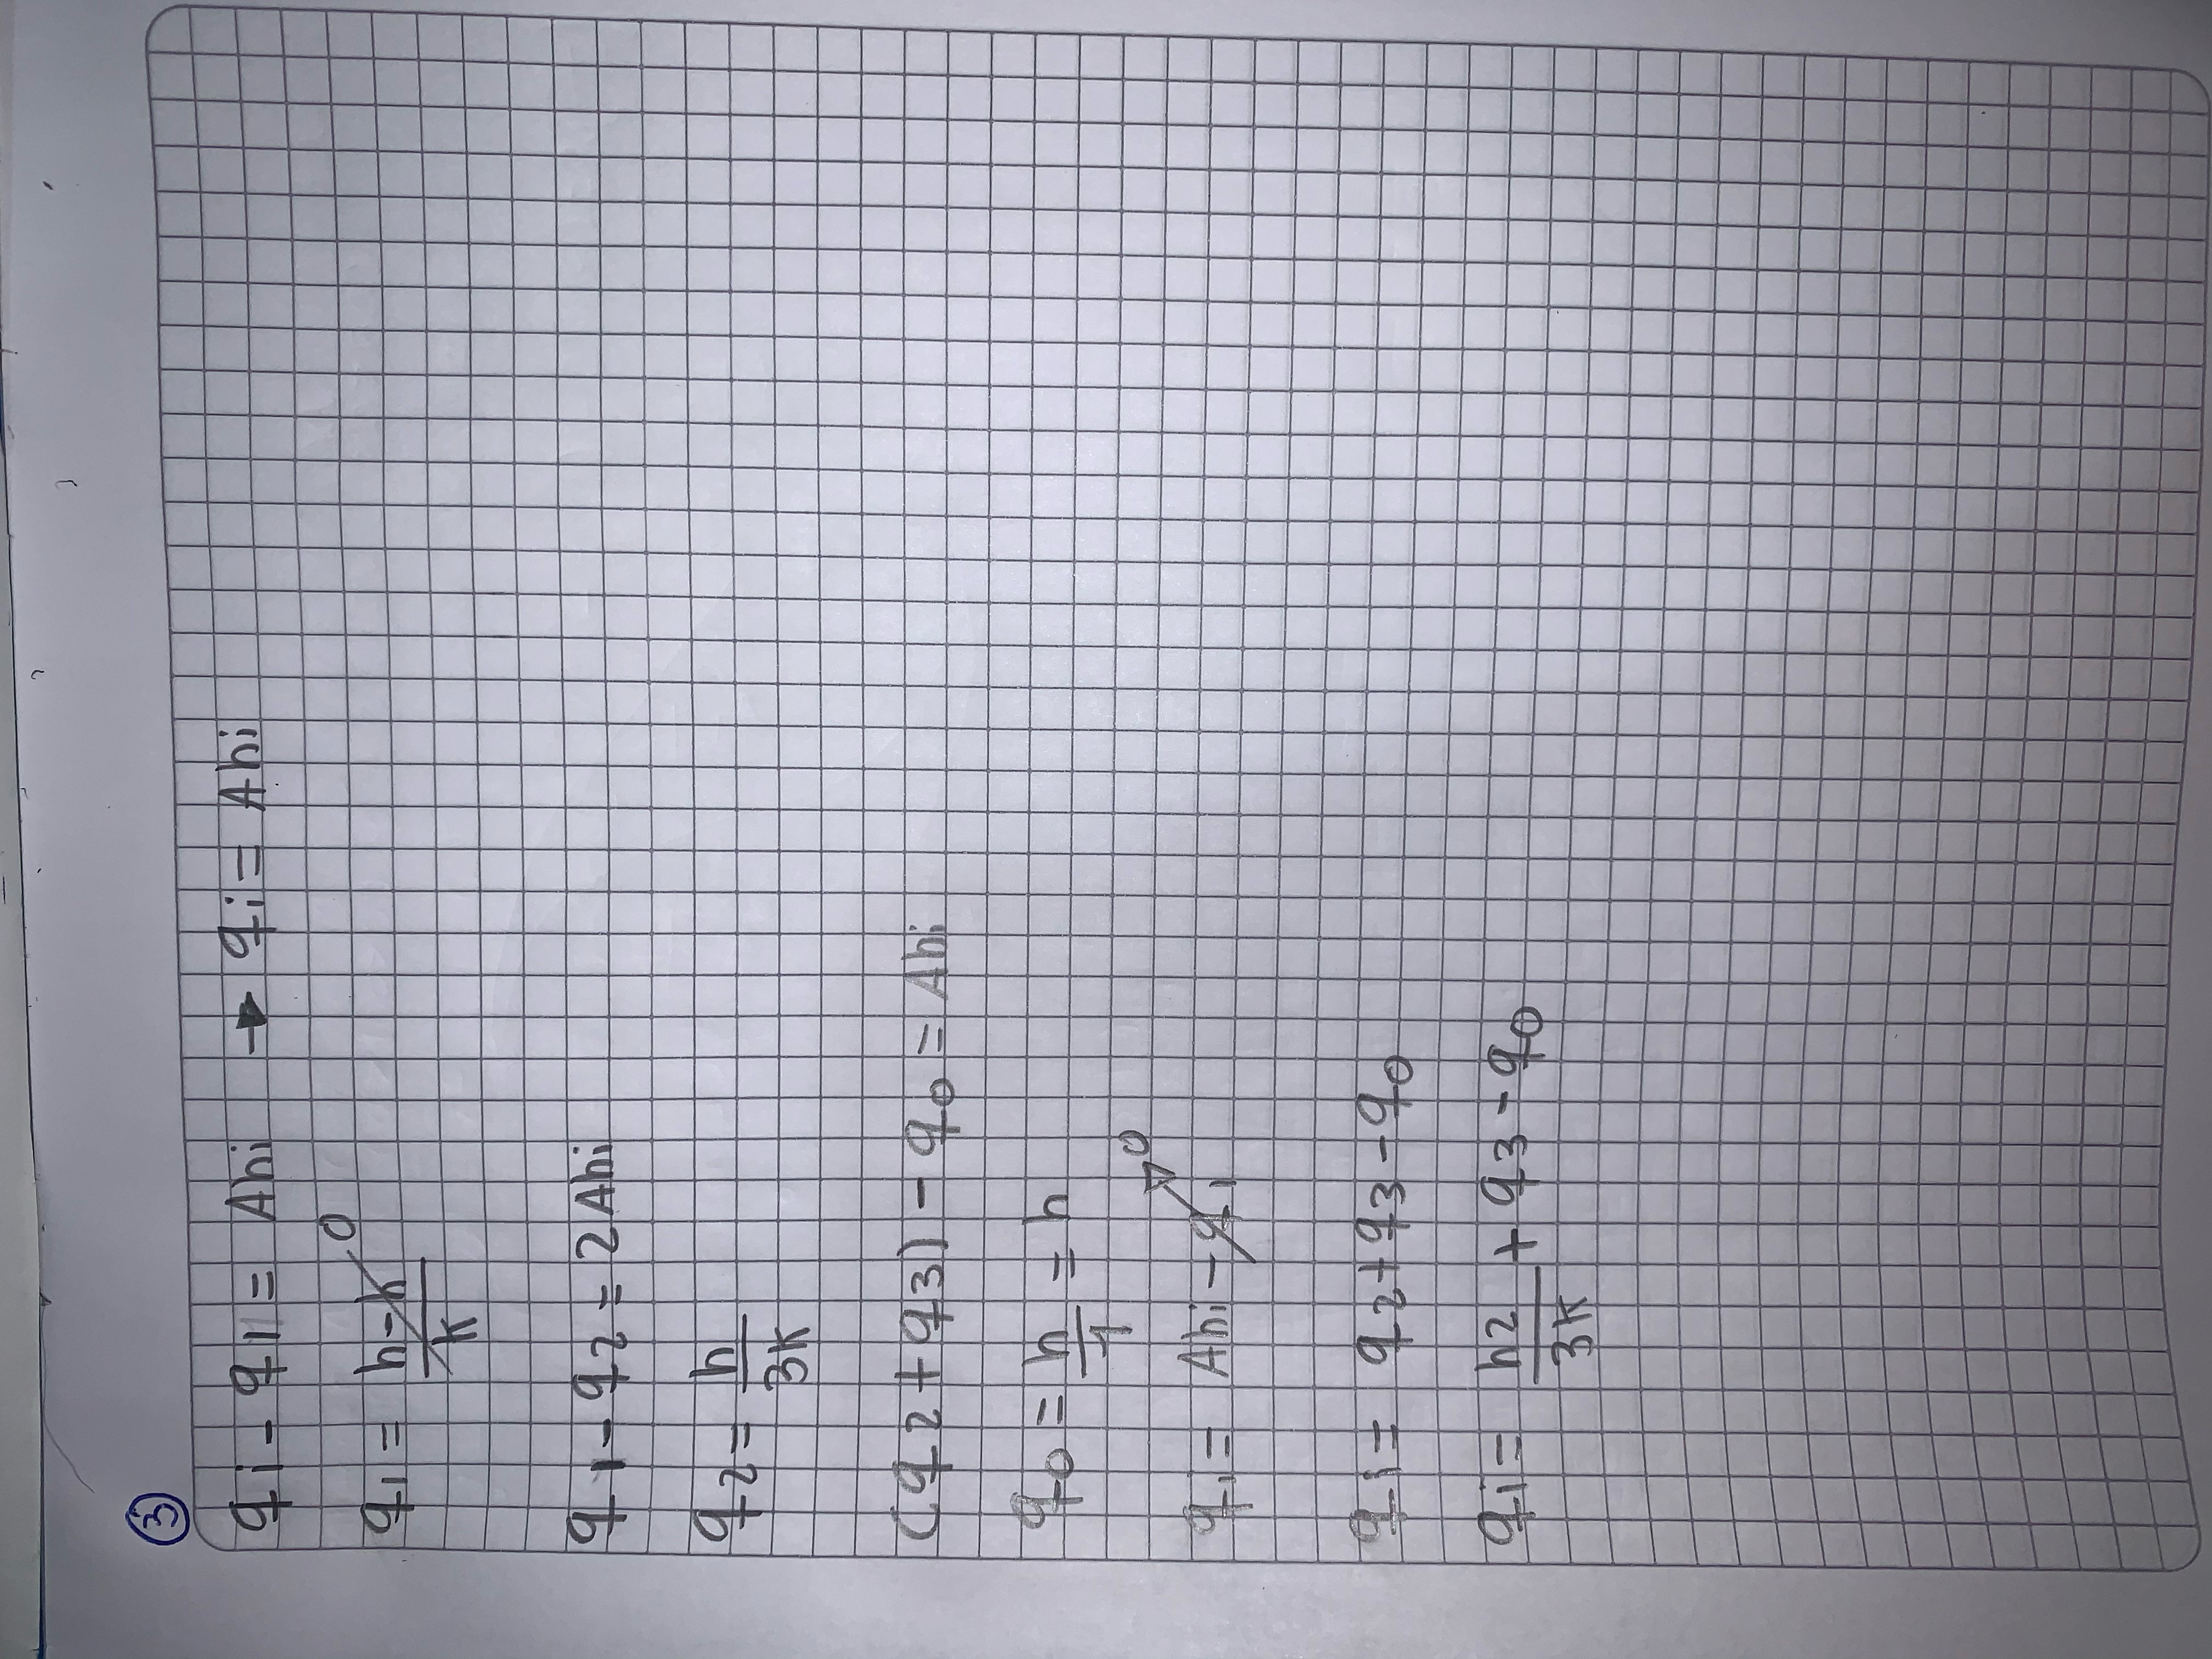 3
qi - q1 = Ahi → qi = Ahi
q1 = (h - h) / k 0
q1 - q2 = 2Ahi
q2 = h / 3k
(q2 + q3) - q0 = Ahi
q0 = h / 1 = h
qi = Ahi - q1 0
qi = q2 + q3 - q0
qi = h2 / 3k + q3 - q0